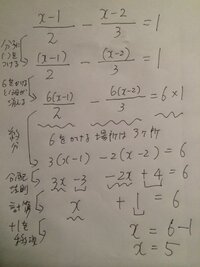 x-1/2 - x-2/3 = 1
分子に()をつける
(x-1)/2 - (x-2)/3 = 1
6をかけ
6(x-1)/2 - 6(x-2)/3 = 6×1
約分
6をかける場所は3ヶ所
3(x-1) - 2(x-2) = 6
分配法則
3x - 3 - 2x + 4 = 6
計算
x + 1 = 6
+1を移項
x = 6-1
x = 5